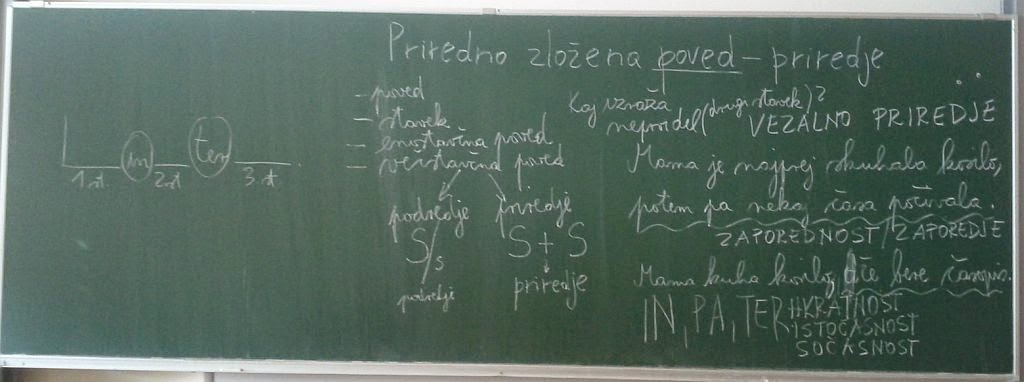 Priredno zložena poved – priredje
in
ter
1. st.
2. st
3. st.
– poved
– stavek
– enostavčna poved
– večstavčna poved
podredje
priredje
S/s
S + S
podredje
priredje
Kaj izraža
(drugi stavek)?
VEZALNO PRIREDJE
Mama je najprej skuhala kosilo,
potem pa nekaj časa počivala.
ZAPOREDNOST / ZAPOREDJE
Mama kuha kosilo, oče bere časopis.
IN, PA, TER
HKRATNOST
ISTOČASNOST
SOČASNOST